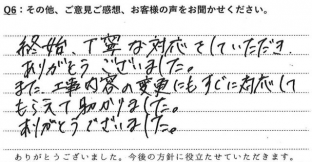 Q6：その他、ご意見ご感想、お客様の声をお聞かせください。
終始、丁寧な対応をしていただき
ありがとうございました。
また、工事内容の変更にもすぐに対応して
もらえて助かりました。
ありがとうございました。
ありがとうございました。今後の方針に役立たせていただきます。